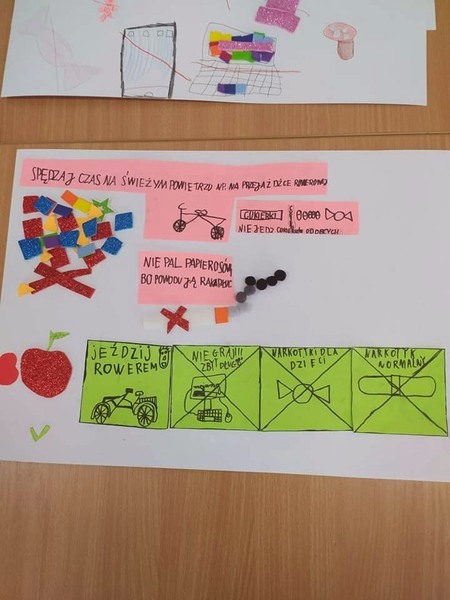 SPĘDZAJ CZAS NA ŚWIEŻYM POWIETRZU NP. NA PRZEJAŻDŻCE ROWEROWEJ
CUKIERKI
NIE JEDZ CUKIERKÓW OD OBCYCH
NIE PAL PAPIEROSÓW
BO POWODUJĄ RAKA PŁUC
JEŹDZIJ
ROWEREM
NIE GRAJ!!!
ZBYT DŁUGO!!
NARKOTYKI DLA
DZIECI
NARKOTYK
NORMALNY